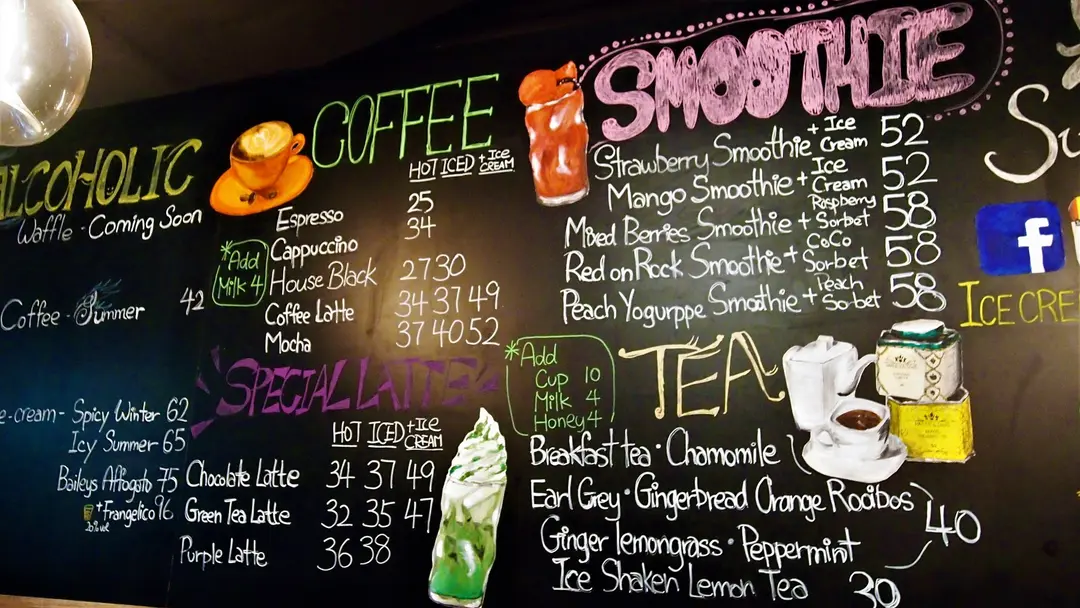 ALCOHOLIC
Waffle - Coming Soon
Coffee - Summer 42
e-cream - Spicy Winter 62
Icy Summer 65
Baileys Affogato 75
+ Frangelico 96
20% vol
COFFEE
HOT ICED + Ice CREAM
Espresso 25
Cappuccino 34
*Add
Milk 4
House Black 27 30
Coffee Latte 34 37 49
Mocha 37 40 52
SPECIAL LATTE
HOT ICED + Ice CREAM
Chocolate Latte 34 37 49
Green Tea Latte 32 35 47
Purple Latte 36 38
SMOOTHIE
Strawberry Smoothie + Ice Cream 52
Mango Smoothie + Ice Cream 52
Mixed Berries Smoothie + Raspberry Sorbet 58
Red on Rock Smoothie + CoCo Sorbet 58
Peach Yogurppe Smoothie + Peach Sorbet 58
*Add
Cup 10
Milk 4
Honey 4
TEA
Breakfast tea · Chamomile
Earl Grey · Gingerbread Orange Rooibos
Ginger lemongrass · Peppermint 40
Ice Shaken Lemon Tea 30
Su
f
ICE CRE